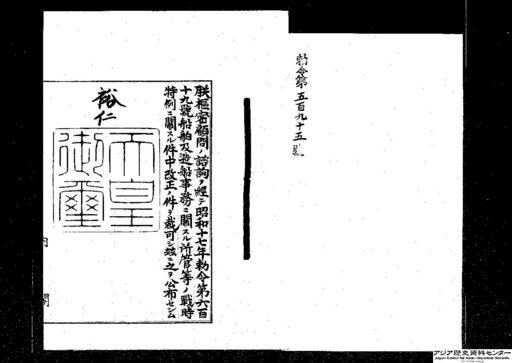 勅令第五百九十五號
朕樞密顧問ノ諮詢ヲ經テ昭和十七年勅令第六百
十九號船舶及造船事務ニ關スル所管等ノ戰時
特例ニ關スル件中改正ノ件ヲ裁可シ玆ニ之ヲ公布セシム
裕仁
天皇御璽
内閣
アジア歴史資料センター
Japan Center for Asian Historical Records